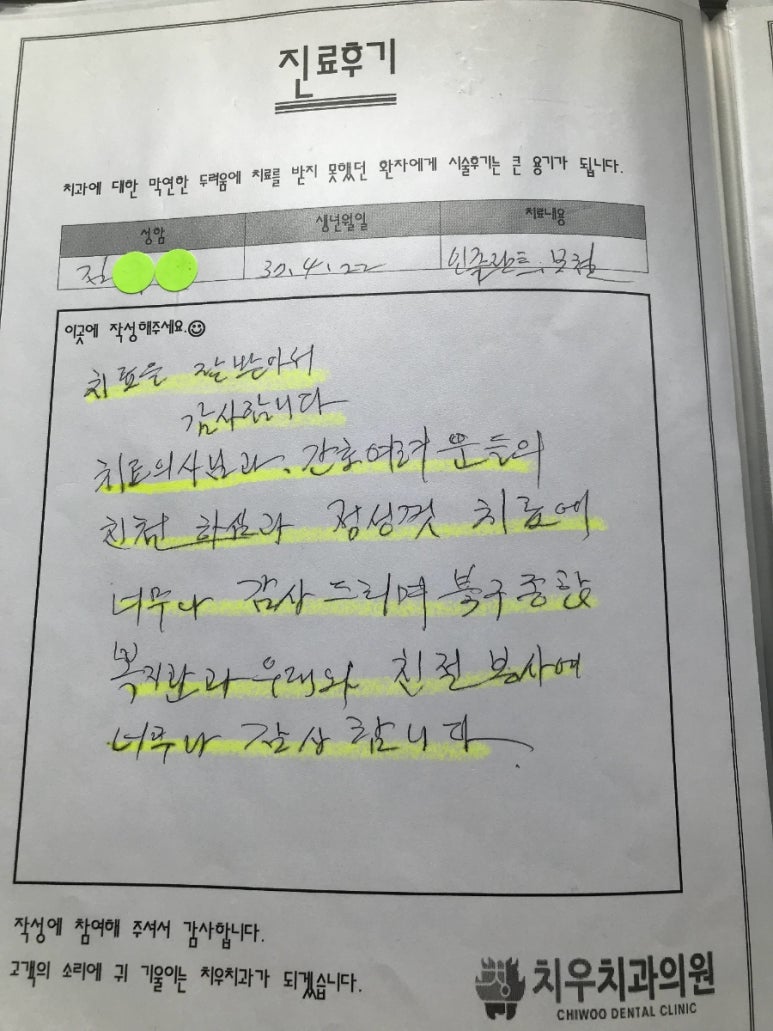 진료후기
치과에 대한 막연한 두려움에 치료를 받지 못했던 환자에게 시술후기는 큰 용기가 됩니다.
성함 생년월일 치료내용
30.4.22 보철
이곳에 작성해주세요.
치료을 잘 받아서
감사합니다
치료의사님과, 간호여러분들의
친절 하심과 정성껏 치료에
너무나 감사 드리며 북구종합
복지관과 우대와 친절 봉사에
너무나 감사 합니다.
작성에 참여해 주셔서 감사합니다.
고객의 소리에 귀 기울이는 치우치과가 되겠습니다.
치우치과의원
CHIWOO DENTAL CLINIC